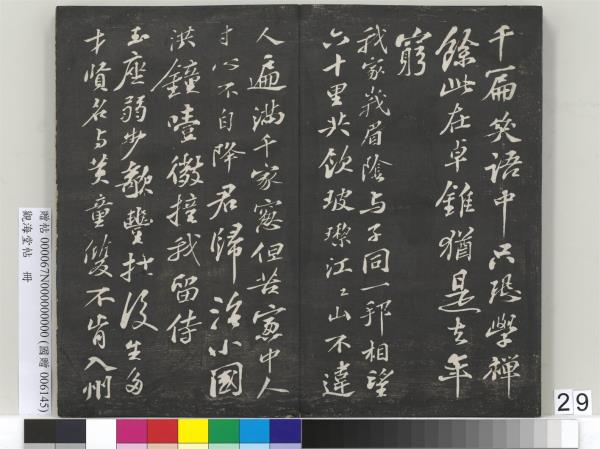 千篇笑語中只恐學禪
餘此在卓錐猶是去年
窮
我家峩眉陰与子同一邦相望
六十里共飲玻瓈江〻山不違
人遍滿千家窻但苦窻中人
寸心不自降君歸治小國
洪鐘噎微撞我留侍
玉座弱步欹豐扛後生多
才賢名与黃童雙不肯入州
贈帖 000067N000000000 (國贈 006145)
觀海堂帖 冊
29